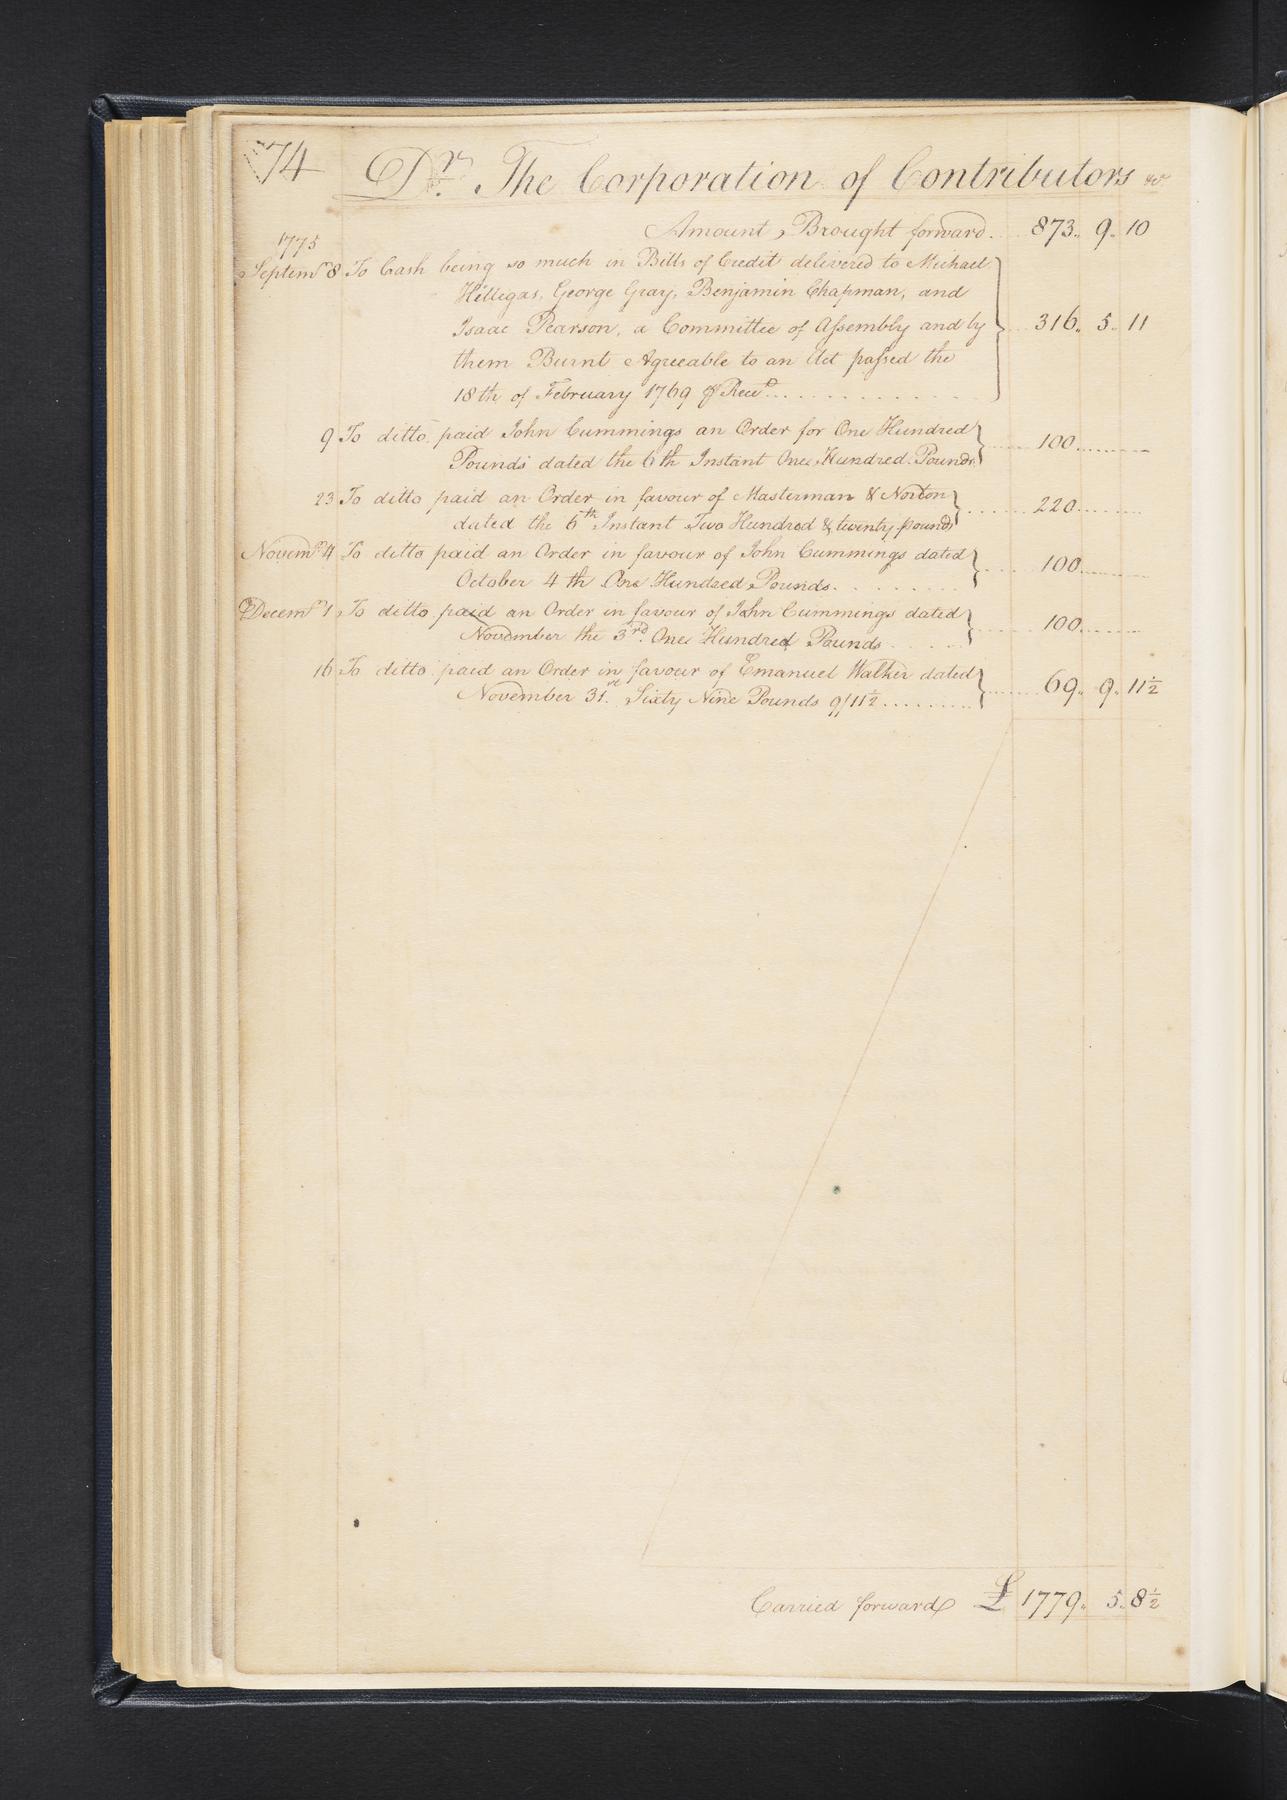 74 Dr. The Corporation of Contributors &c
Amount Brought forward. 873.. 9.. 10
1775
Septemr 8 To Cash being so much in Bills of Credit delivered to Michael
Hilligas, George Gray, Benjamin Chapman, and
Isaac Pearson, a Committee of Assembly and by 316.. 5.. 11
them Burnt Agreeable to an Act passed the
18th of February 1769 ℘ Recd
9 To ditto paid John Cummings an Order for One Hundred
Pounds dated the 6th Instant One Hundred Pounds 100
23 To ditto paid an Order in favour of Masterman & Norton
dated the 6th Instant Two Hundred & twenty pounds 220
Novemr 4 To ditto paid an Order in favour of John Cummings dated
October 4th One Hundred Pounds 100
Decemr 1 To ditto paid an Order in favour of John Cummings dated
November the 3rd. One Hundred Pounds 100
16 To ditto paid an Order in favour of Emanuel Walker dated
November 31.st Sixty Nine Pounds 9/11½ 69.. 9.. 11½
Carried forward £ 1779.. 5.. 8½